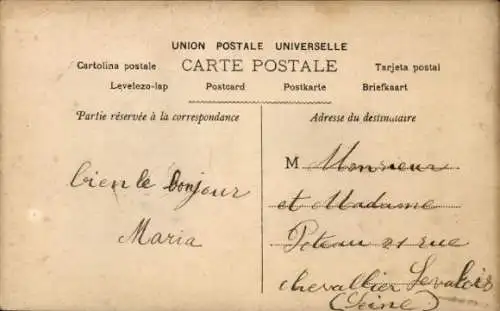 UNION POSTALE UNIVERSELLE
Cartolina postale CARTE POSTALE Tarjeta postal
Levelezo-lap Postcard Postkarte Briefkaart
Partie réservée à la correspondance
Adresse du destinataire
bien le bonjour
Maria
M Monsieur
et Madame
Poteau 21 rue
chevallier Levalois
(Seine)